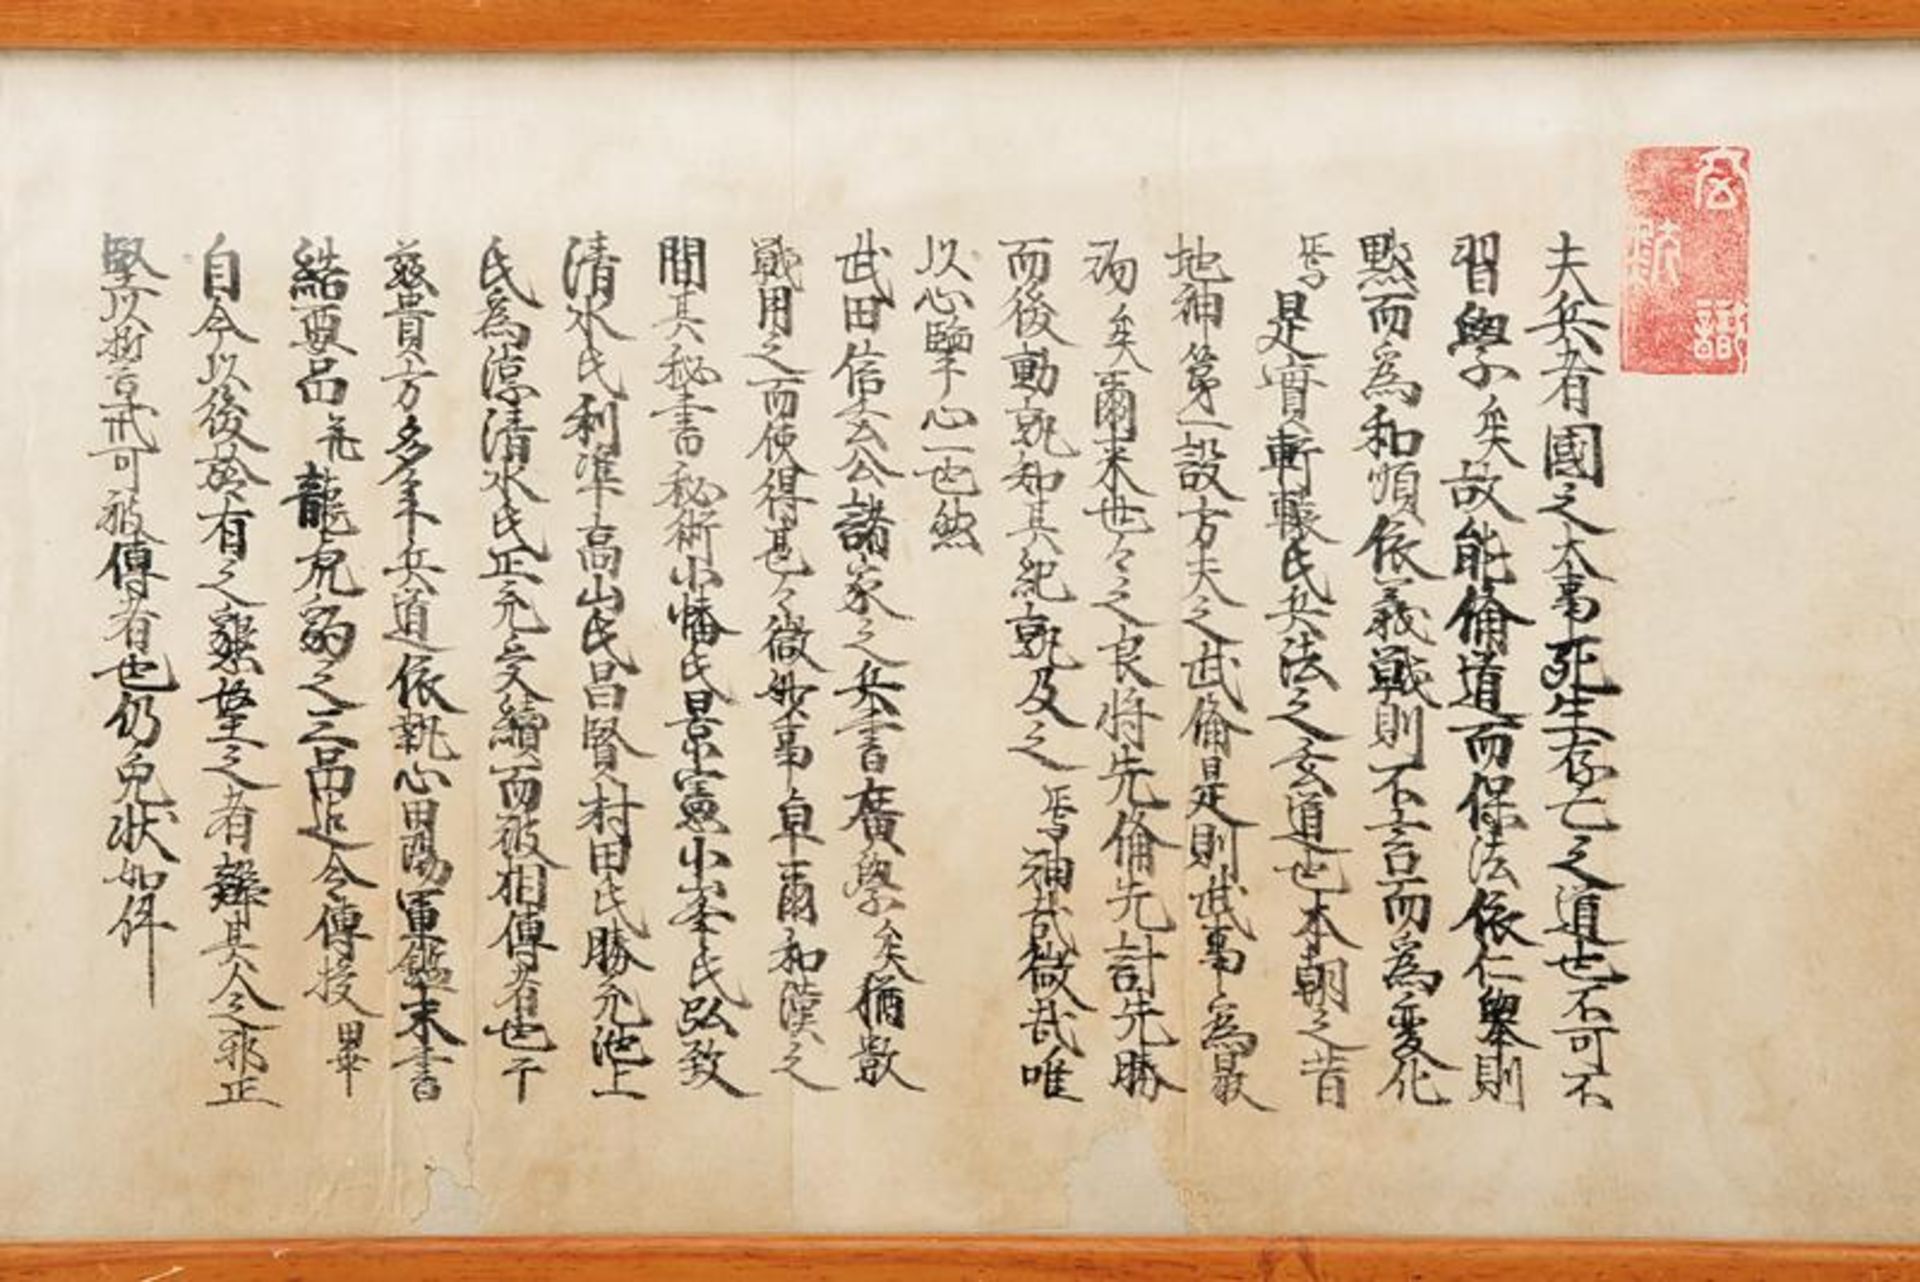 夫兵者國之大事死生存亡之道也不可不
習學矣故能倫道而保法依仁舉則
黙而為和順依義戰則不言而為変化
焉是實軒轅氏兵法之玄道也本朝之昔
地神第一設方夫之武倫是則武事為最
矣爾来世々之良将先倫先計先勝
而後動孰知其紀孰及之焉神哉微哉唯
以心擊心一也然
武田信玄公諸家之兵書廣學矣猶數
戦用之而使得甚々微妙事卓爾和漢之
間其秘書秘術小幡氏景憲小峯氏弘致
清水氏利準高山氏昌賢村田氏勝允池上
氏為涼清水氏正允交續而被相傳者也干
茲貴方多年兵道依執心甲陽軍鑑末書
結要品龍虎豹之三品迄令傳授畢
自今以後於有之懇望之者有辨其人之邪正
堅以可被傳者也仍免状如件